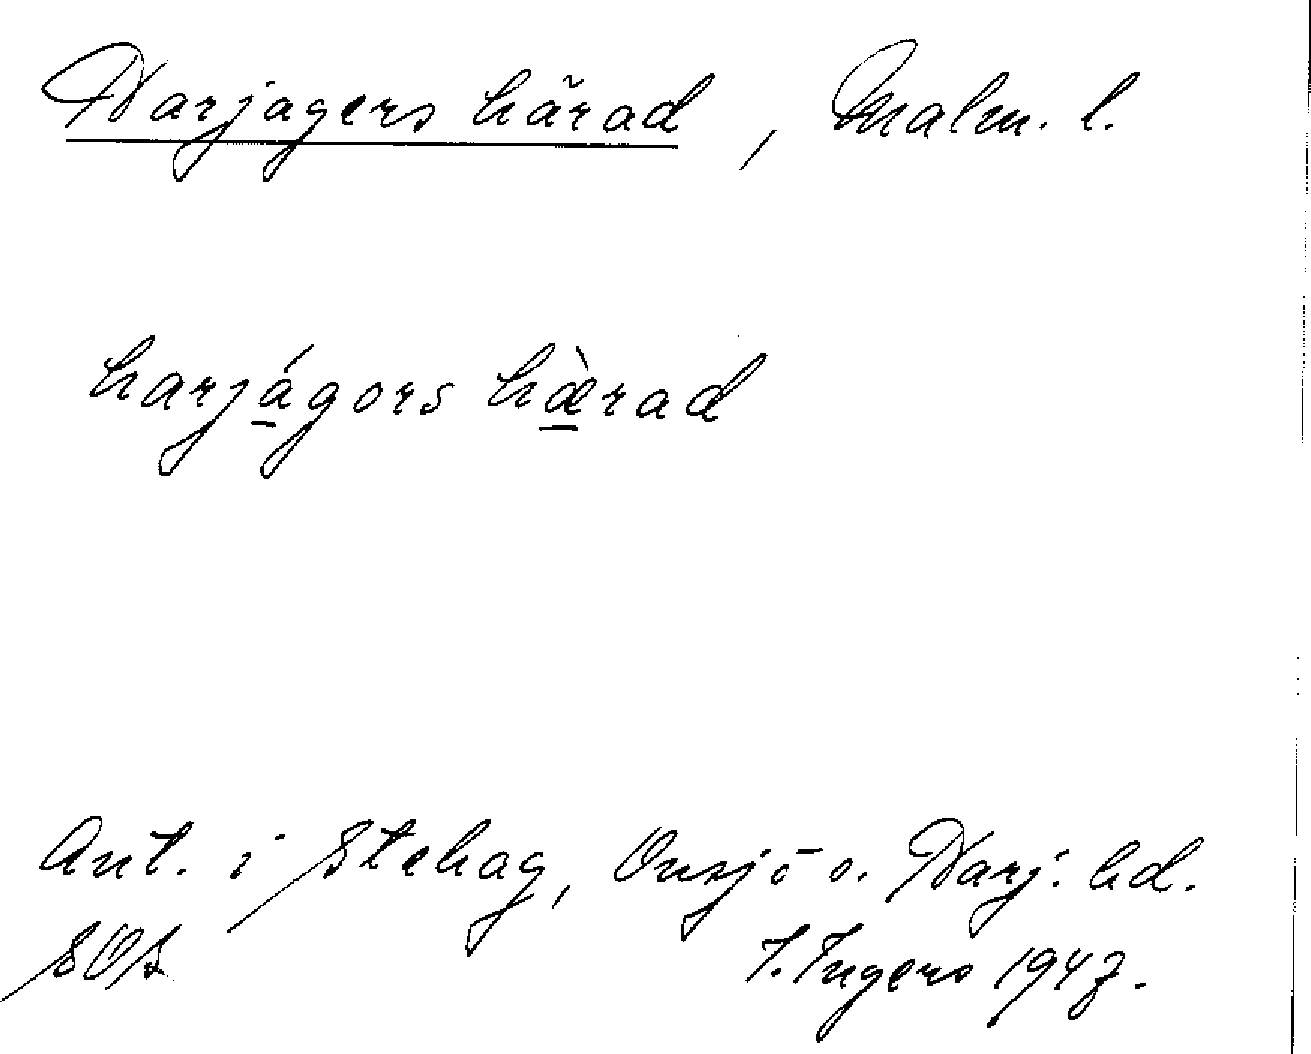 Harjagers härad, Malm. l.
harjágors hæ̀rad
Ant. i Stehag, Onsjö o. Harj. hd.
SOS I. Ingers 1947.